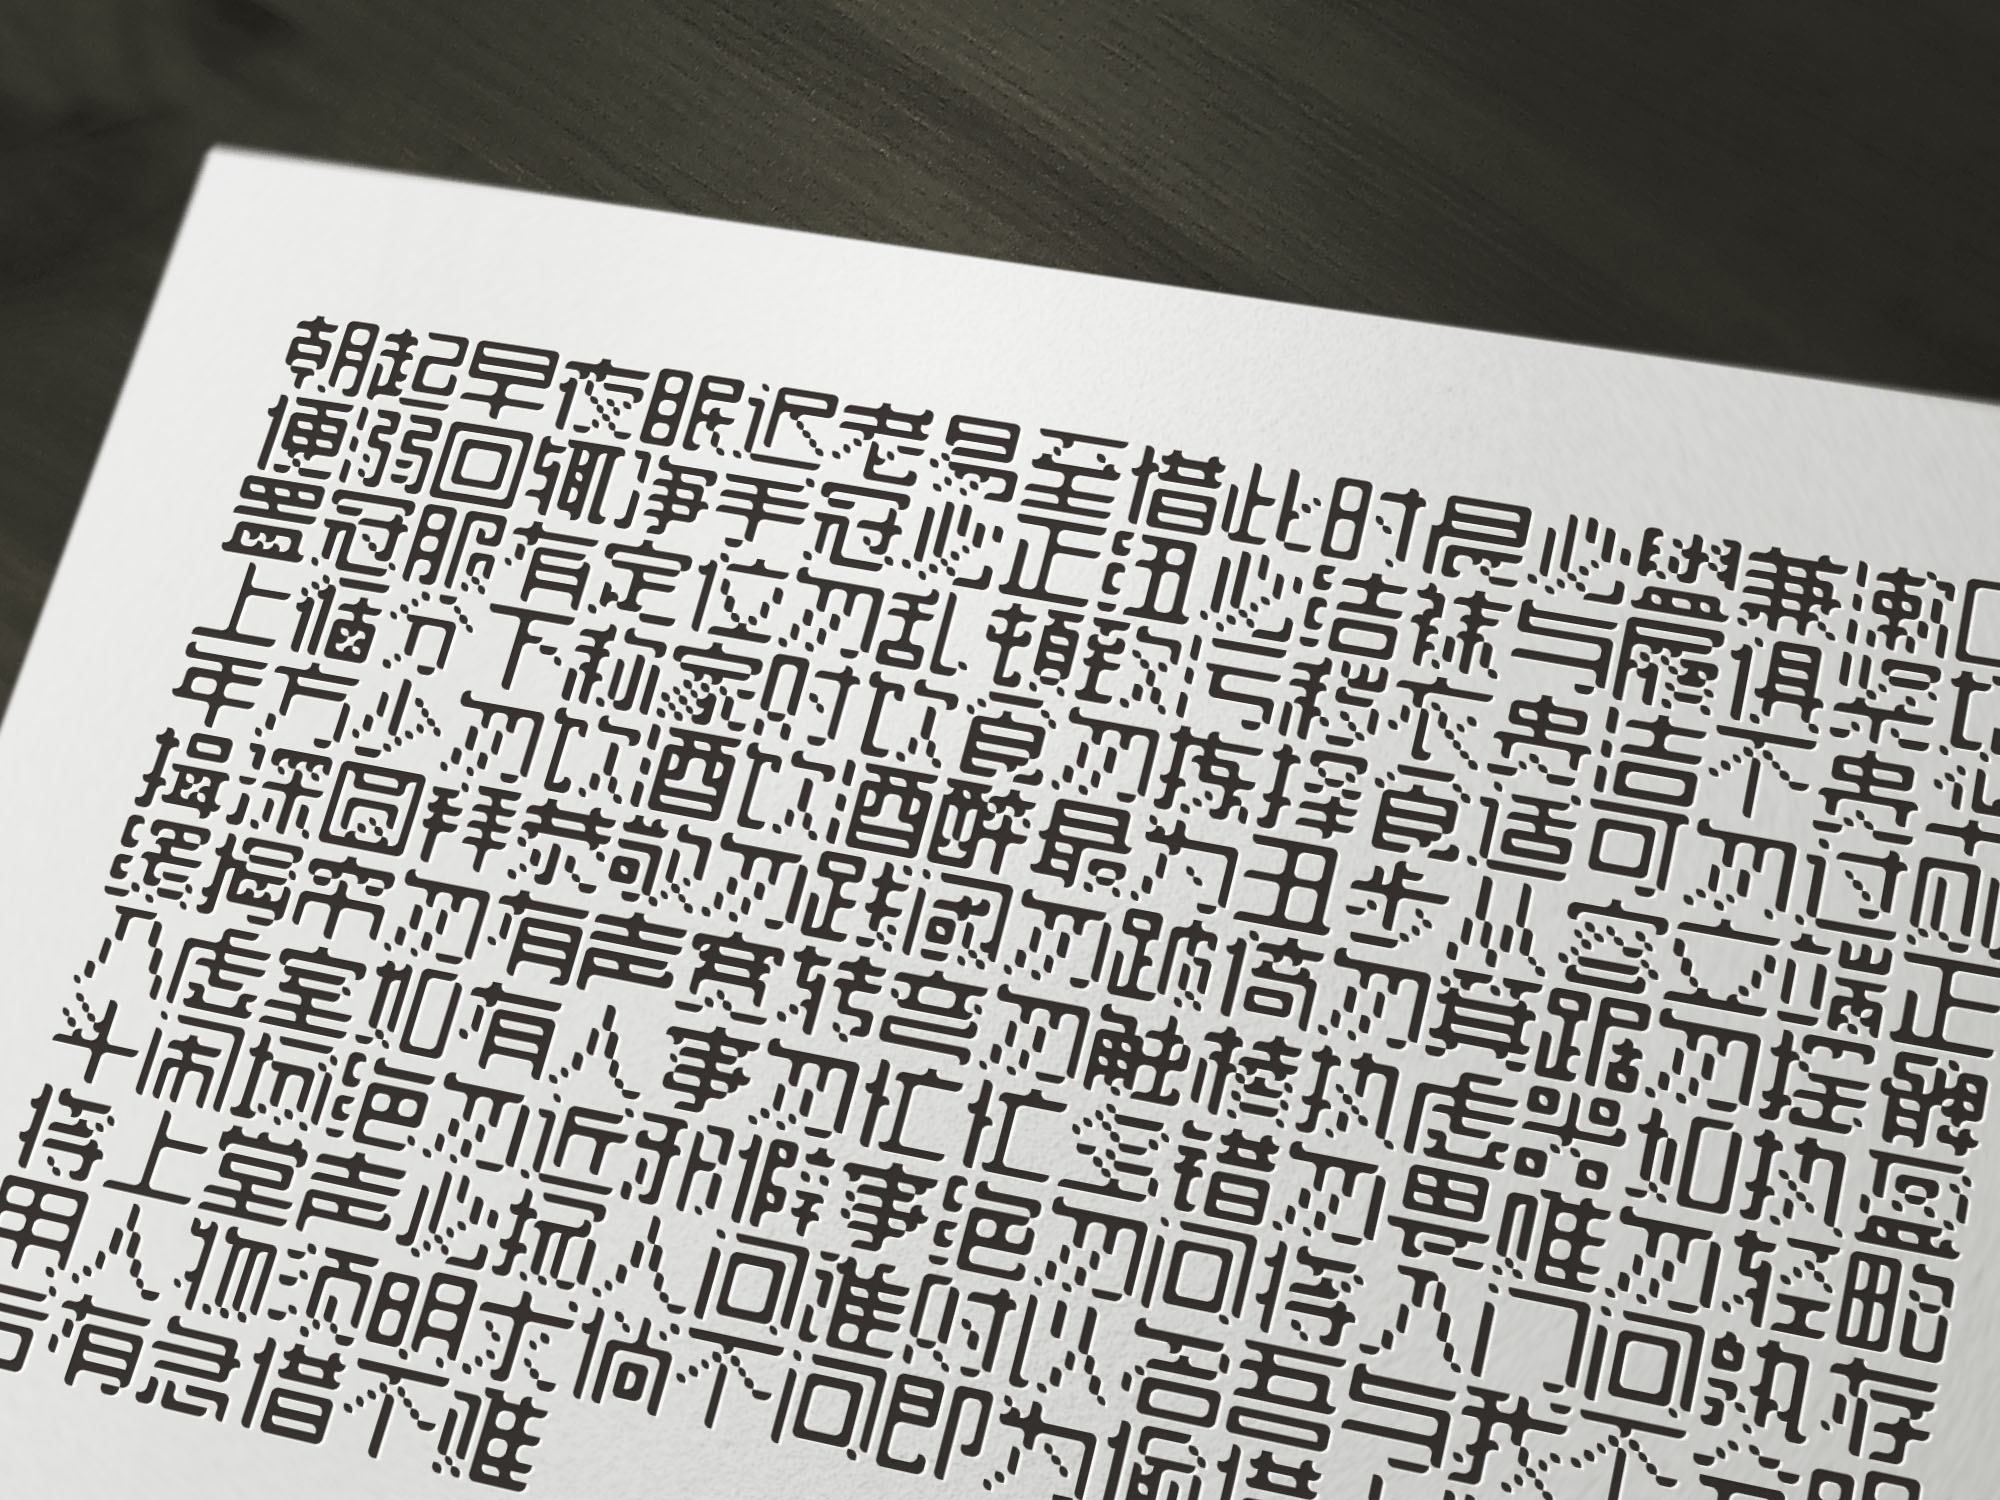 朝起早夜眠迟老易至惜此时晨必盥兼漱口
便溺回辄净手冠必正纽必结袜与履俱紧切
置冠服有定位勿乱顿致污秽衣贵洁不贵
上循分下称家对饮食勿拣择食适可勿过则
年方少勿饮酒饮酒醉最为丑步从容立端正
揖深圆拜恭敬勿践阈勿跛倚勿箕踞勿摇髀
缓揭帘勿有声宽转弯勿触棱执虚器如执盈
入虚室如有人事勿忙忙多错勿畏难勿轻略
斗闹场绝勿近邪僻事绝勿问将入门问孰存
将上堂声必扬人问谁对以名吾与我不分明
用人物须明求倘不问即为偷借
后有急借不难